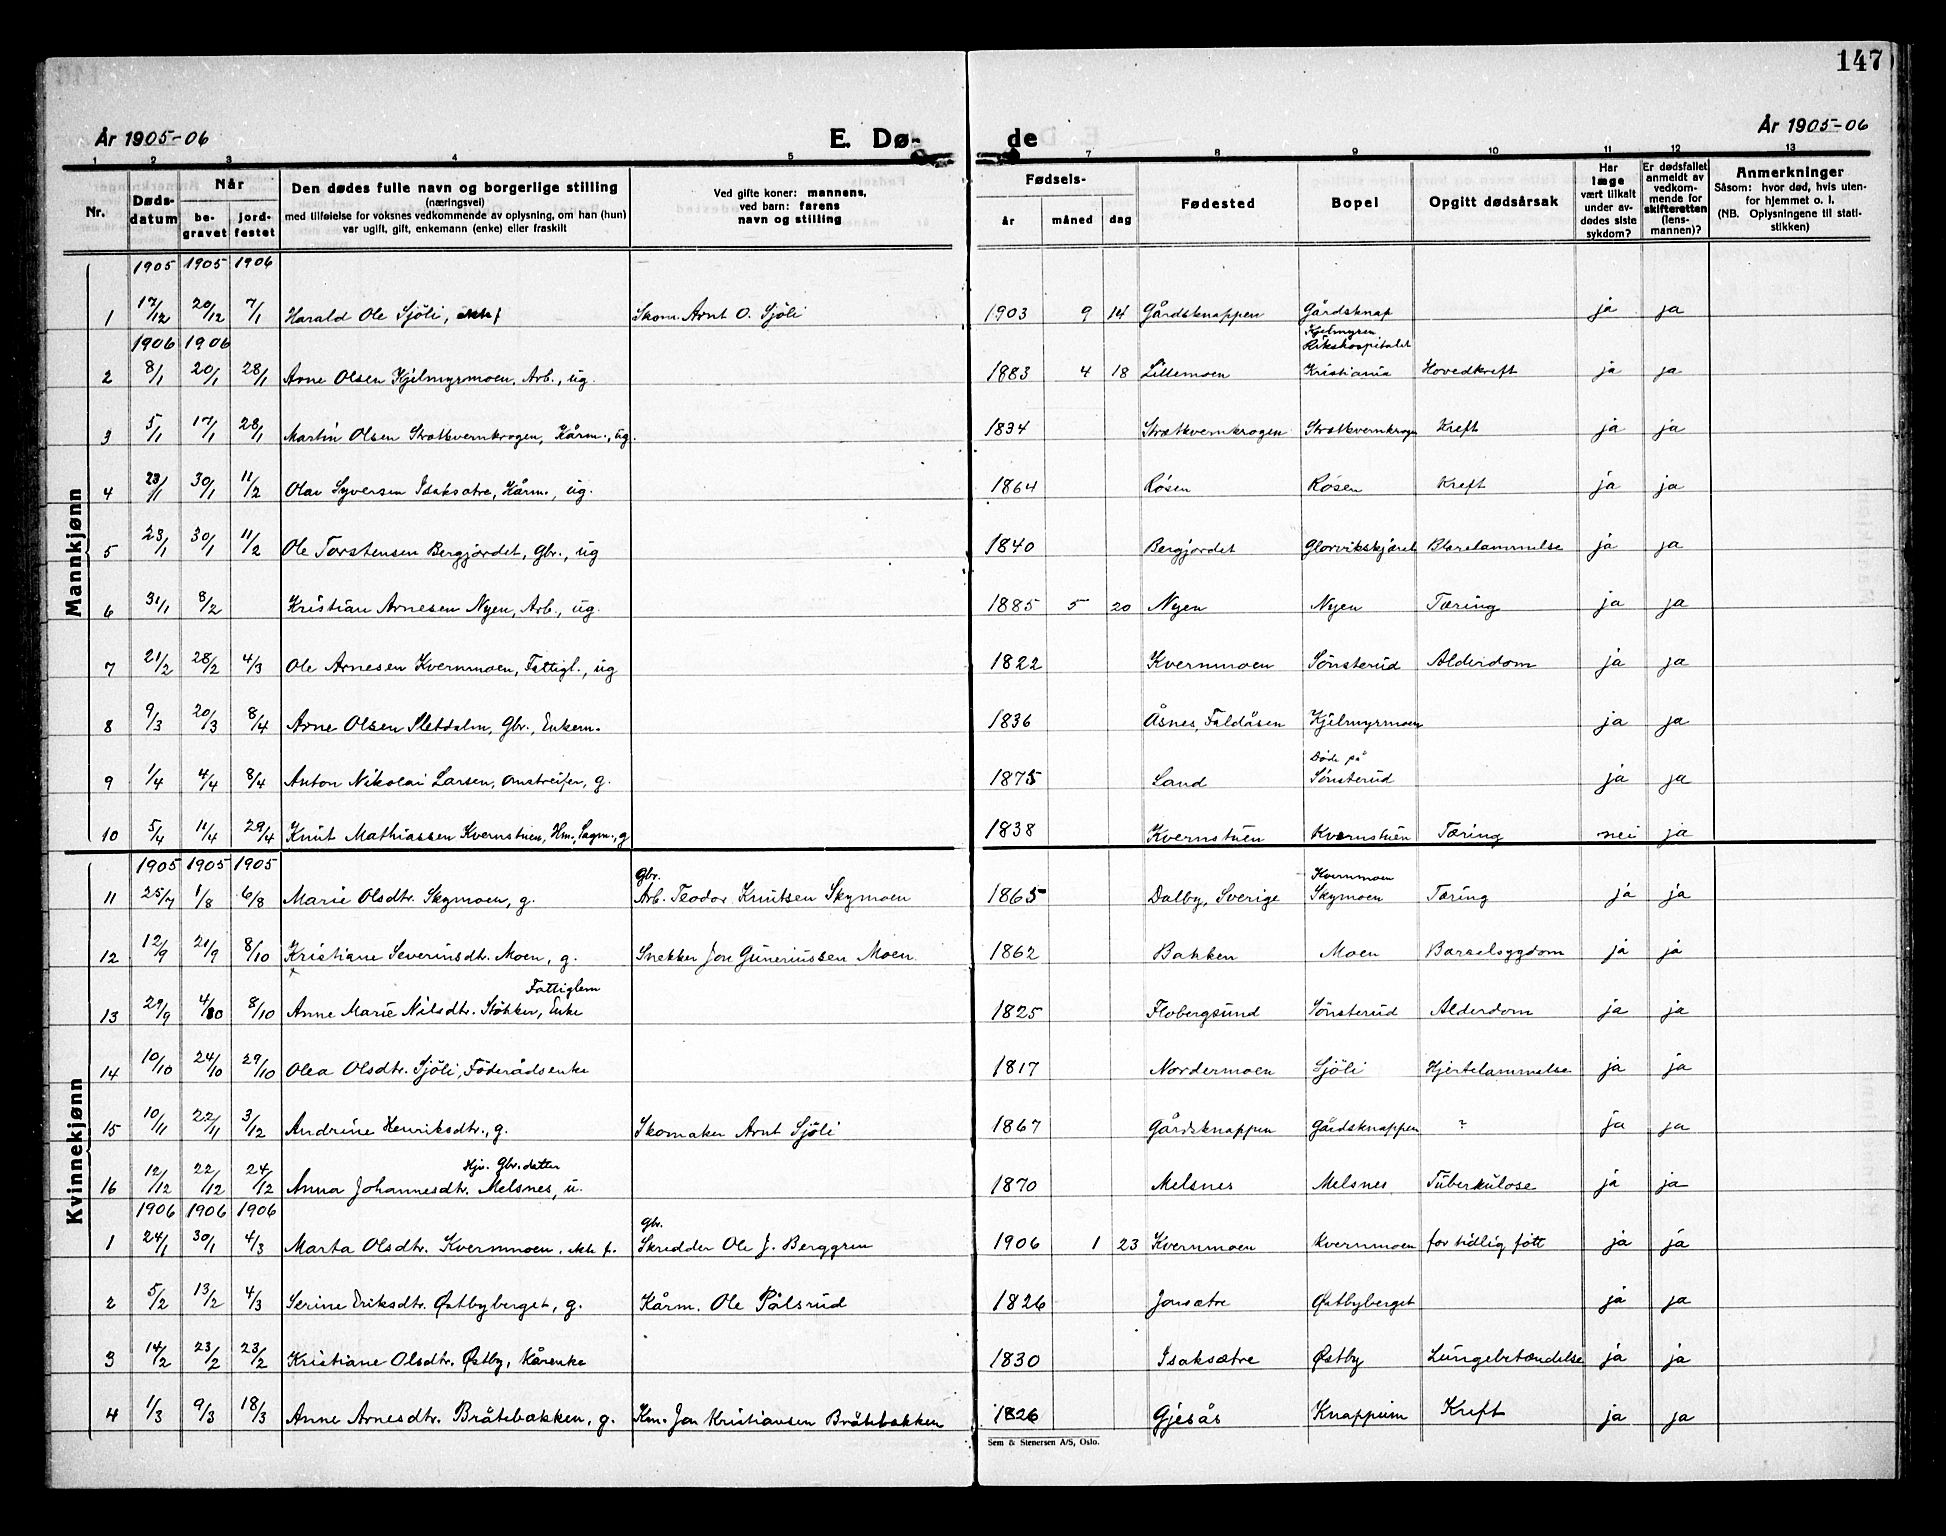 147
År 1905-06 E. Dø- de År 1905-06
1 2 3 4 5 7 8 9 10 11 12 13
Nr.
Døds-
datum
Når
be-
gravet
jord-
festet
Den dødes fulle navn og borgerlige stilling
(næringsvei)
med tilføielse for voksnes vedkommende av oplysning, om han (hun)
var ugift, gift, enkemann (enke) eller fraskilt
Ved gifte koner: mannens,
ved barn: farens
navn og stilling
Fødsels-
år måned dag
Fødested
Bopel
Opgitt dødsårsak
Har
læge
vært tilkalt
under av-
dødes siste
sykdom?
Er dødsfallet
anmeldt av
vedkom-
mende for
skifteretten
(lens-
mannen)?
Anmerkninger
Såsom: hvor død, hvis uten-
for hjemmet o. l.
(NB. Oplysningene til stati-
stikken)
Mannkjønn
1905 1905 1906
1 17/12 20/12 7/1 Harald Ole Sjöli, Skom. Arnt O. Sjöli 1903 9 14 Gårdsknappen Gårdsknap ja ja
1906 1906 Kjelmyren
Rikshospitalet
2 8/1 20/1 28/1 Arne Olsen Kjelmyrmoen, Arb., ug. 1883 4 18 Lillemoen Kristiania Hovedkreft ja ja
3 5/1 17/1 28/1 Martin Olsen Strætkvernkrogen, Kårm., ug. 1834 Strætkvernkrogen Strætkvernkrogen Kreft ja ja
4 23/1 30/1 11/2 Olav Syversen Isaksætre, Kårm., ug. 1864 Røsen Røsen Kreft ja ja
5 23/1 30/1 11/2 Ole Torstensen Bergjordet, Gbr., ug 1840 Bergjordet Glorvikskjæret Blærelammelse ja ja
6 31/1 8/2 Kristian Arnesen Nyen, Arb., ug. 1885 5 20 Nyen Nyen Tæring ja ja
7 21/2 28/2 4/3 Ole Arnesen Kvernmoen, Fattigl., ug 1822 Kvernmoen Sönsterud Alderdom ja ja
8 9/3 20/3 8/4 Arne Olsen Sletdalen, Gbr., Enkem. 1836 Åsnes, Faldåsen Kjelmyrmoen ja ja
Döde på
9 1/4 4/4 8/4 Anton Nikolai Larsen, Omstreifer, g. 1875 Land Sönsterud ja ja
10 5/4 11/4 29/4 Knut Mathiassen Kvernstuen, Hm., Sagm., g 1838 Kvernstuen Kvernstuen Tæring nei ja
Kvinnekjønn
1905 1905 1905 Gbr. Kvernmoen
11 25/7 1/8 6/8 Marie Olsdtr. Skymoen, g. Arb. Teodor Knutsen Skymoen 1865 Dalby, Sverige Skymoen Tæring ja ja
12 12/9 21/9 8/10 Kristiane Severinsdtr. Moen, g. Snekker Jon Gunerussen Moen 1862 Bakken Moen Barselsygdom ja ja
Fattiglem
13 29/9 4/10 8/10 Anne Marie Nilsdtr. Stökken, Enke 1825 Flobergsund Sönsterud Alderdom ja ja
14 10/10 24/10 29/10 Olea Olsdtr. Sjöli, Föderådsenke 1817 Nordermoen Sjöli Hjertelammelse ja ja
15 10/11 22/11 3/12 Andrine Henriksdtr., g. Skomaker Arnt Sjöli 1867 Gårdsknappen Gårdsknappen ? ja ja
Hjv. Gbr.datter
16 12/12 22/12 24/12 Anna Johannesdtr. Melsnes, u. 1870 Melsnes Melsnes Tuberkulose ja ja
1906 1906 1906 Gbr.
1 24/1 30/1 4/3 Marta Olsdtr. Kvernmoen, ekte f. Skredder Ole J. Berggren 1906 1 23 Kvernmoen Kvernmoen for tidlig fött ja ja
2 5/2 13/2 4/3 Serine Eriksdtr. Østbyberget, g. Kårm. Ole Pålsrud 1826 Jonsætre Østbyberget ja ja
3 14/2 23/2 23/2 Kristiane Olsdtr. Østby, Kårenke 1830 Isaksætre Østby Lungebetændelse ja ja
4 1/3 9/3 18/3 Anne Arnesdtr. Bråtebakken, g. Km. Jon Kristiansen Bråtebakken 1826 Gjesås Knappum Kreft ja ja
Sem & Stenersen A/S, Oslo.